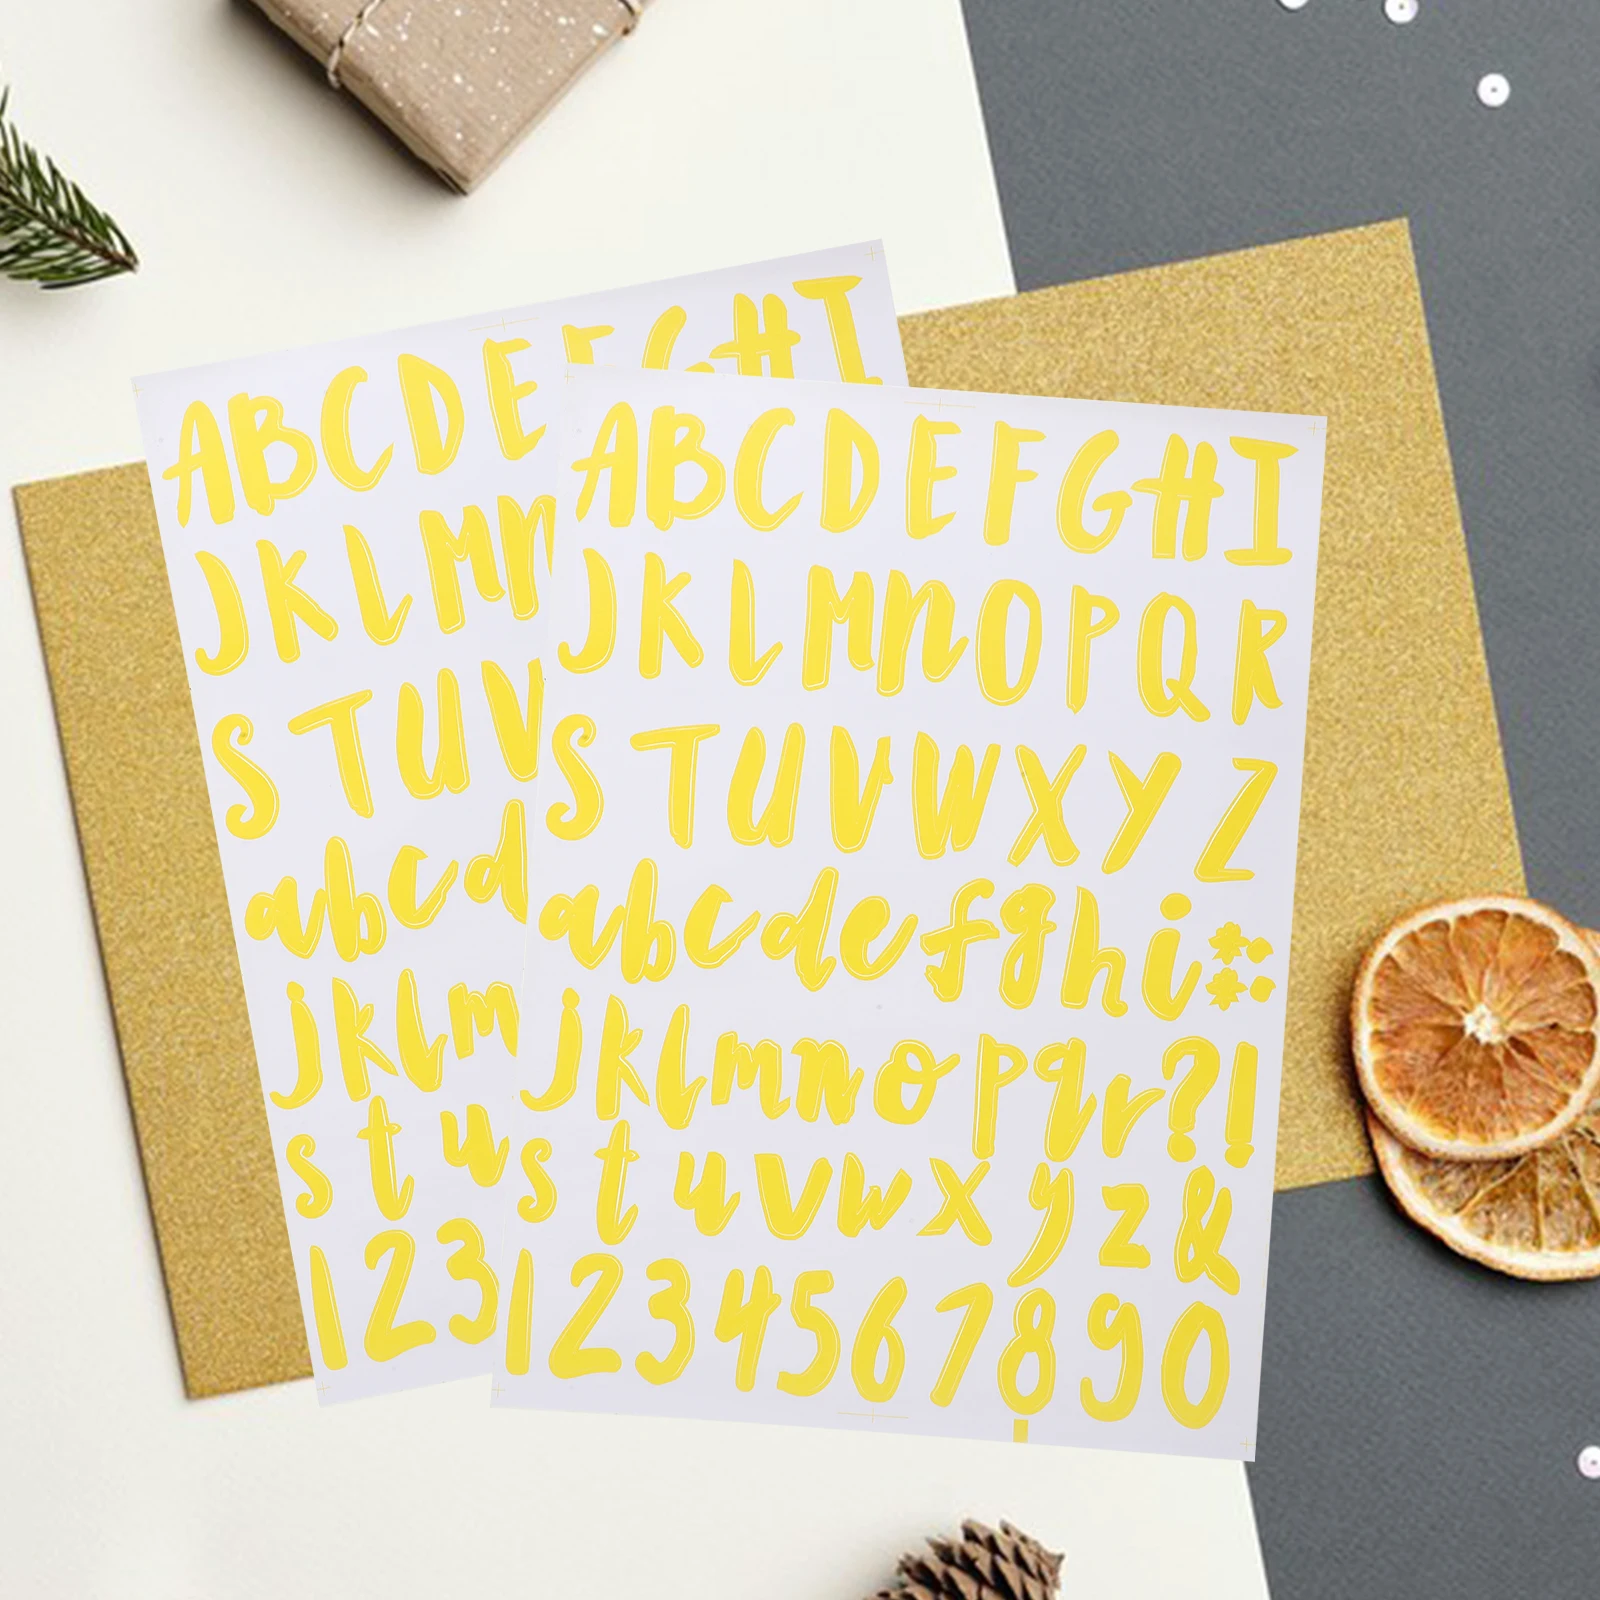 ABCDEFGHI
JKLMn
STUV
abcd
jklm
stu
123
ABCDEFGHI
JKLMnOPQR
STUVWXYZ
abcdefghi
jklmnopqr?!
stuvwxyz&
1234567890